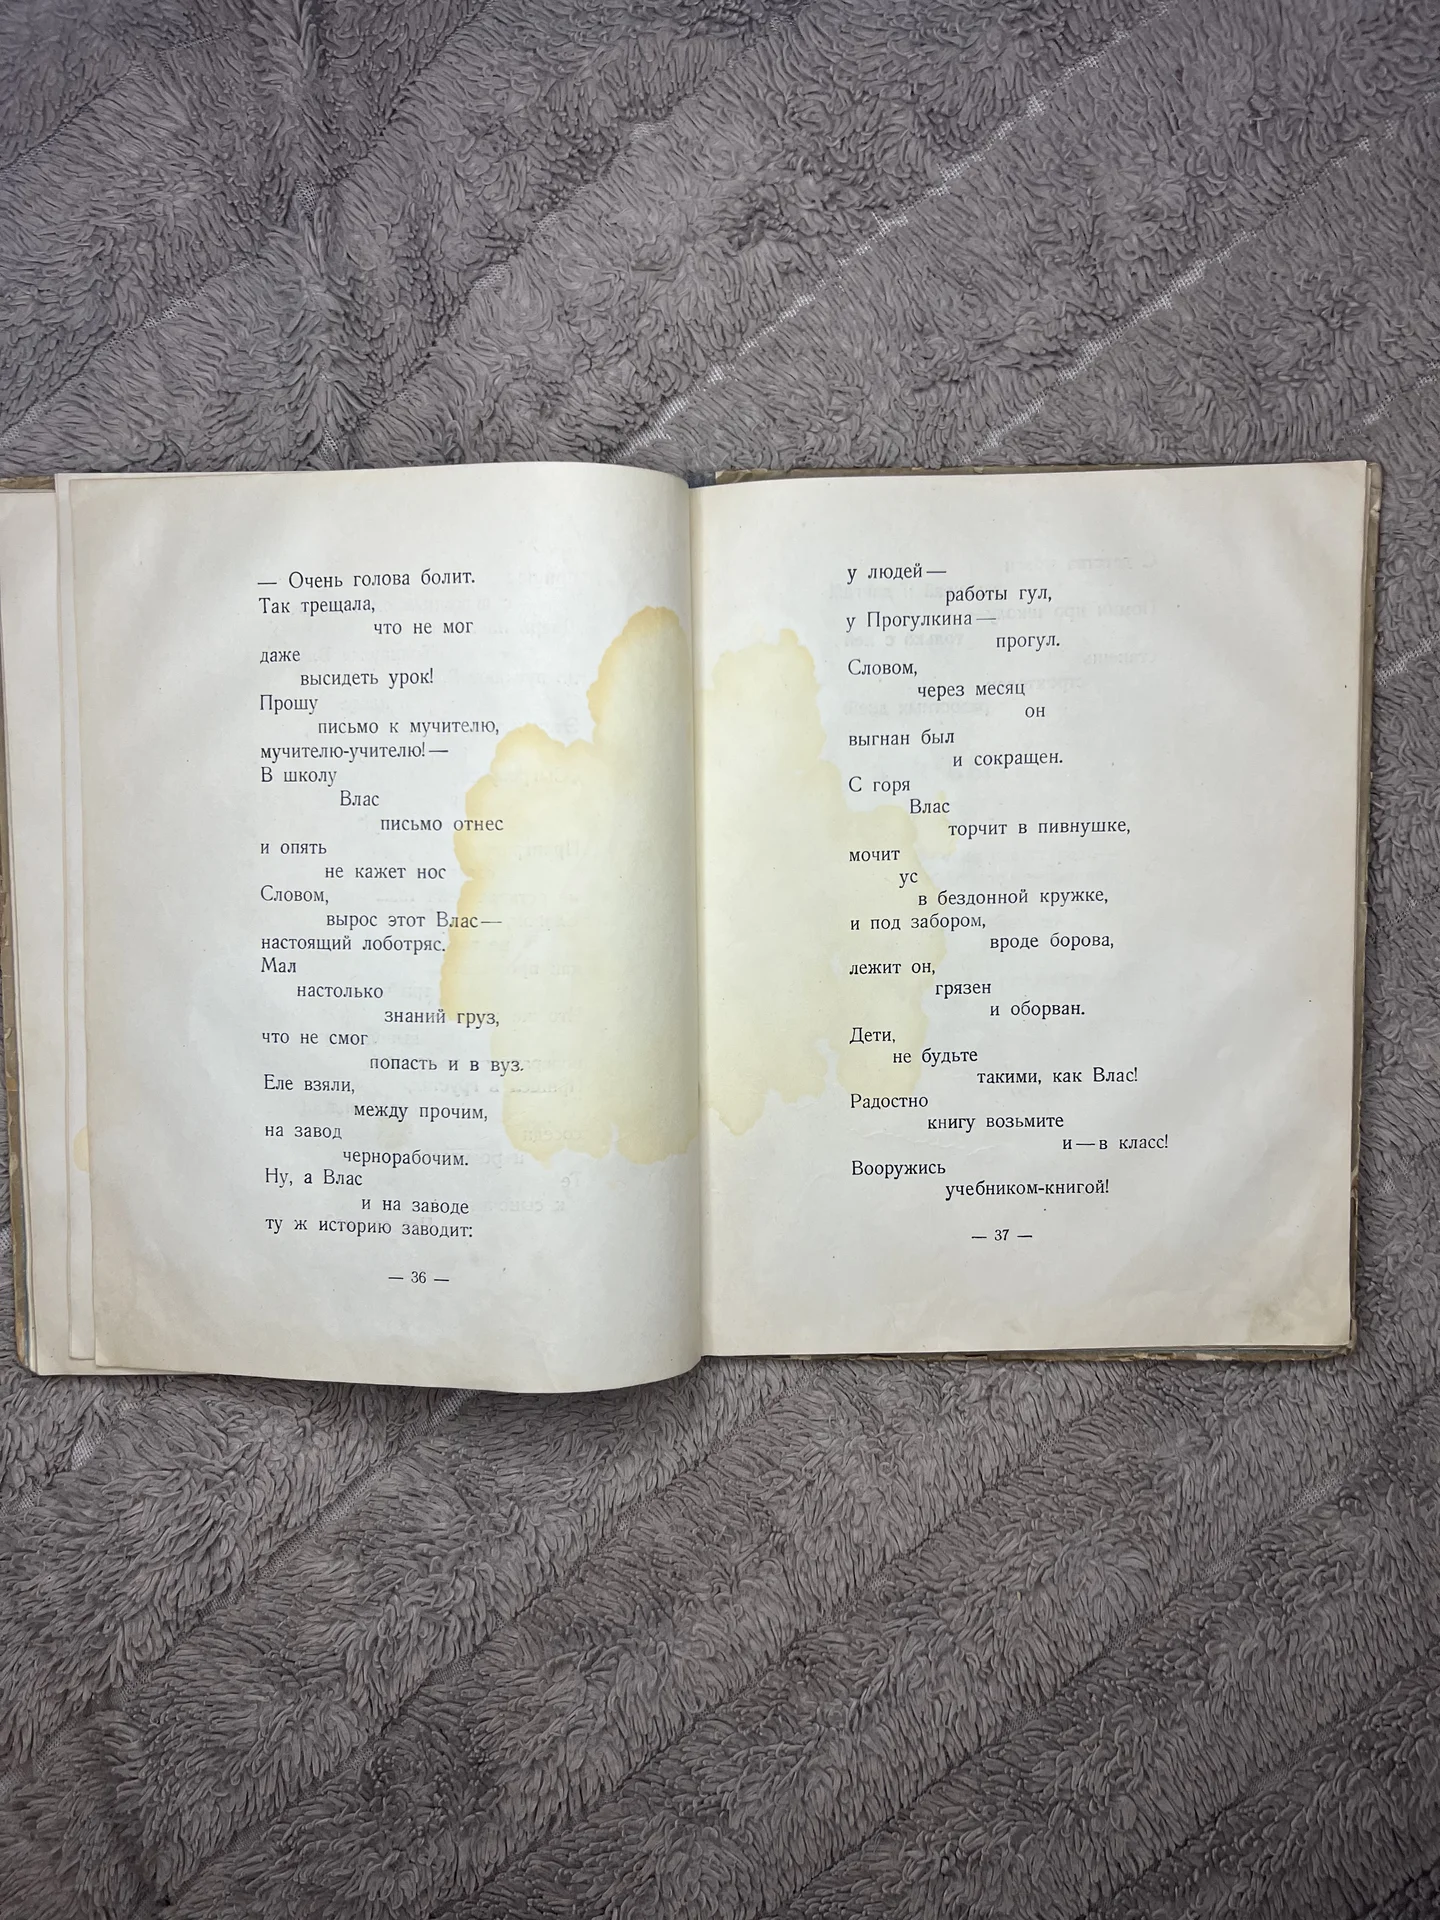 — Очень голова болит.
Так трещала,
что не мог
даже
высидеть урок!
Прошу
письмо к мучителю,
мучителю-учителю! —
В школу
Влас
письмо отнес
и опять
не кажет нос
Словом,
вырос этот Влас —
настоящий лоботряс.
Мал
настолько
знаний груз,
что не смог
попасть и в вуз.
Еле взяли,
между прочим,
на завод
чернорабочим.
Ну, а Влас
и на заводе
ту ж историю заводит:
— 36 —
у людей —
работы гул,
у Прогулкина —
прогул.
Словом,
через месяц
он
выгнан был
и сокращен.
С горя
Влас
торчит в пивнушке,
мочит
ус
в бездонной кружке,
и под забором,
вроде борова,
лежит он,
грязен
и оборван.
Дети,
не будьте
такими, как Влас!
Радостно
книгу возьмите
и — в класс!
Вооружись
учебником-книгой!
— 37 —